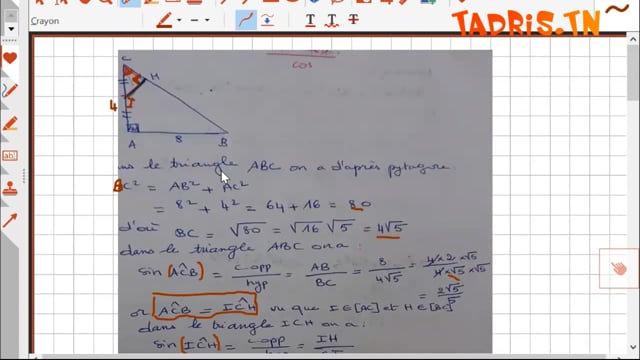 Crayon
TADRIS.TN
cos
C
H
I
4
A
8
B
le triangle ABC on a d'après pytagore.
BC² = AB² + AC²
= 8² + 4² = 64 + 16 = 80
d'où BC = √80 = √16 √5 = 4√5
dans le triangle ABC on a :
sin (AĈB) = c.opp/hyp = AB/BC = 8/4√5 = 4×2×√5/4×√5×√5
= 2√5/5
or AĈB = IĈH vu que I∈[AC] et H∈[BC]
dans le triangle ICH on a :
sin (IĈH) = c.opp = IH